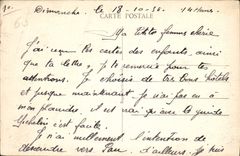 Dimanche, le 18-10-36 14 heures.
CARTE POSTALE
Ma petite femme chérie
J'ai reçu tes cartes des enfants, ainsi
que ta lettre, je te remercie pour tes
attentions. Je choisis de très bons hôtels
et jusque maintenant je n'ai pas eu à
m'en plaindre, il est vrai qu'avec le guide
Michelin c'est facile.
Je n'ai nullement l'intention de
descendre vers Pau. D'ailleurs, je suis